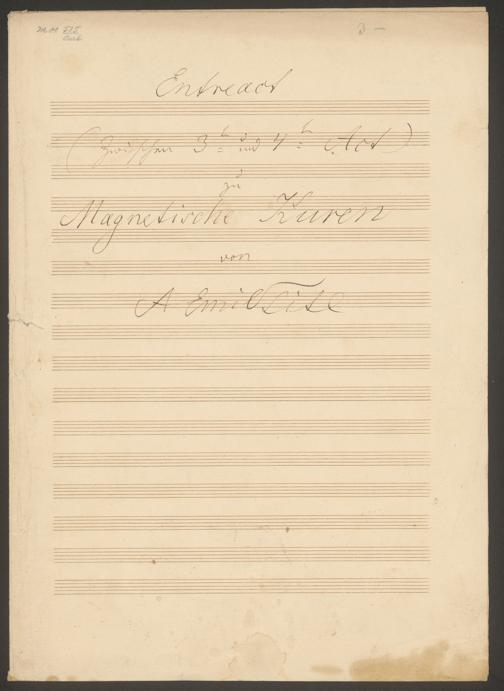 3 —
Entreact
(Zwischen 3tn und 4tn Act)
zu
Magnetische Kuren
von
A Emil Titl